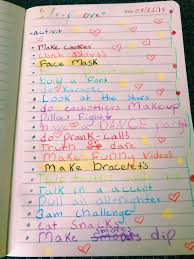 Sleep over
-activit
- Make cookies
- Watch movies
- Face Mask
- build a Fort
- do Karaoke
- Look at the Stars
- do each others Makeup
- Pillow Fight
- DANCE party
- do Prank-Calls
- Truth or dare
- Make Funny Videos
- Make bracelets
- Talk in a accent
- Pull an allnighter
- 3am challenge
- eat Snacks
- Make Smores dip